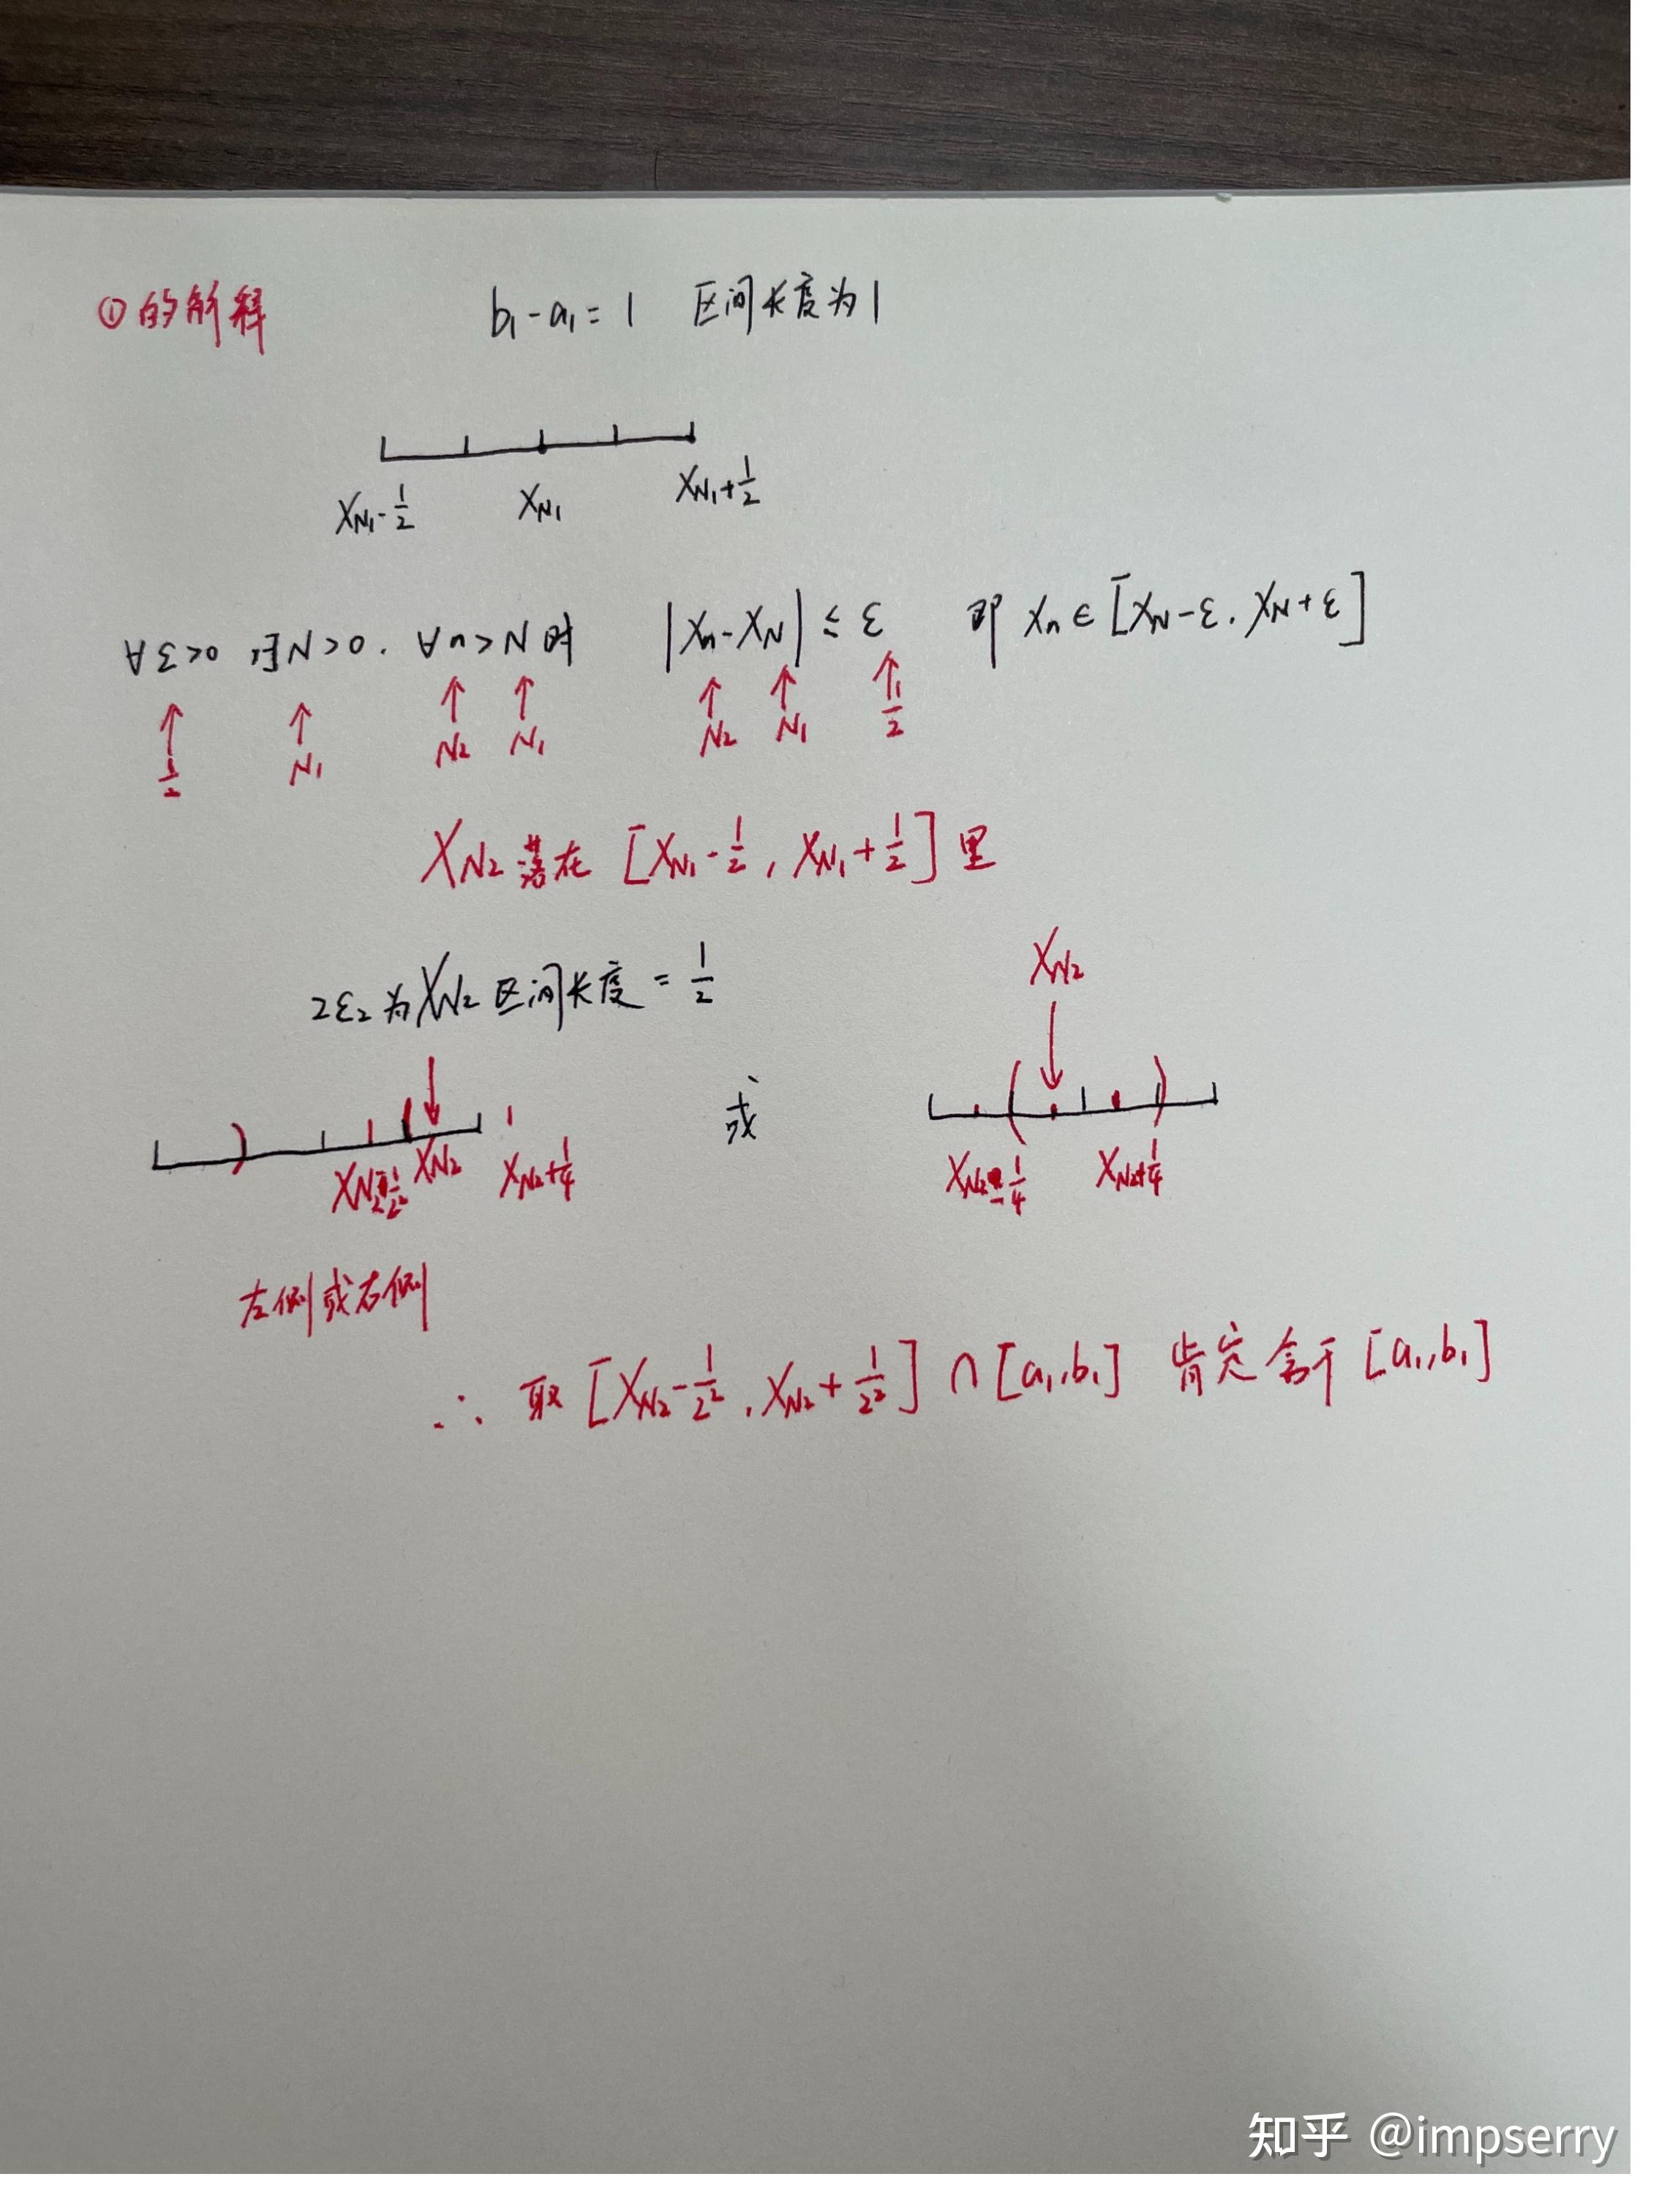 ①的解释 b₁-a₁=1 区间长度为1
X_{N₁}-1/2 X_{N₁} X_{N₁}+1/2
∀ε>0,∃N>0.∀n>N时 |Xₙ-X_N|≤ε 即 Xₙ∈[X_N-ε.X_N+ε]
↑ ↑ ↑ ↑ ↑ ↑ ↑
1/2 N₁ N₂ N₁ N₂ N₁ 1/2
X_{N₂}落在[X_{N₁}-1/2,X_{N₁}+1/2]里
2ε₂为X_{N₂}区间长度=1/2
X_{N₂}
或
X_{N₂}-1/2² X_{N₂} X_{N₂}+1/4 X_{N₂}-1/4 X_{N₂}+1/4
左侧或右侧
∴ 取[X_{N₂}-1/2²,X_{N₂}+1/2²]∩[a₁,b₁] 肯定含于[a₁,b₁]
知乎 @impserry